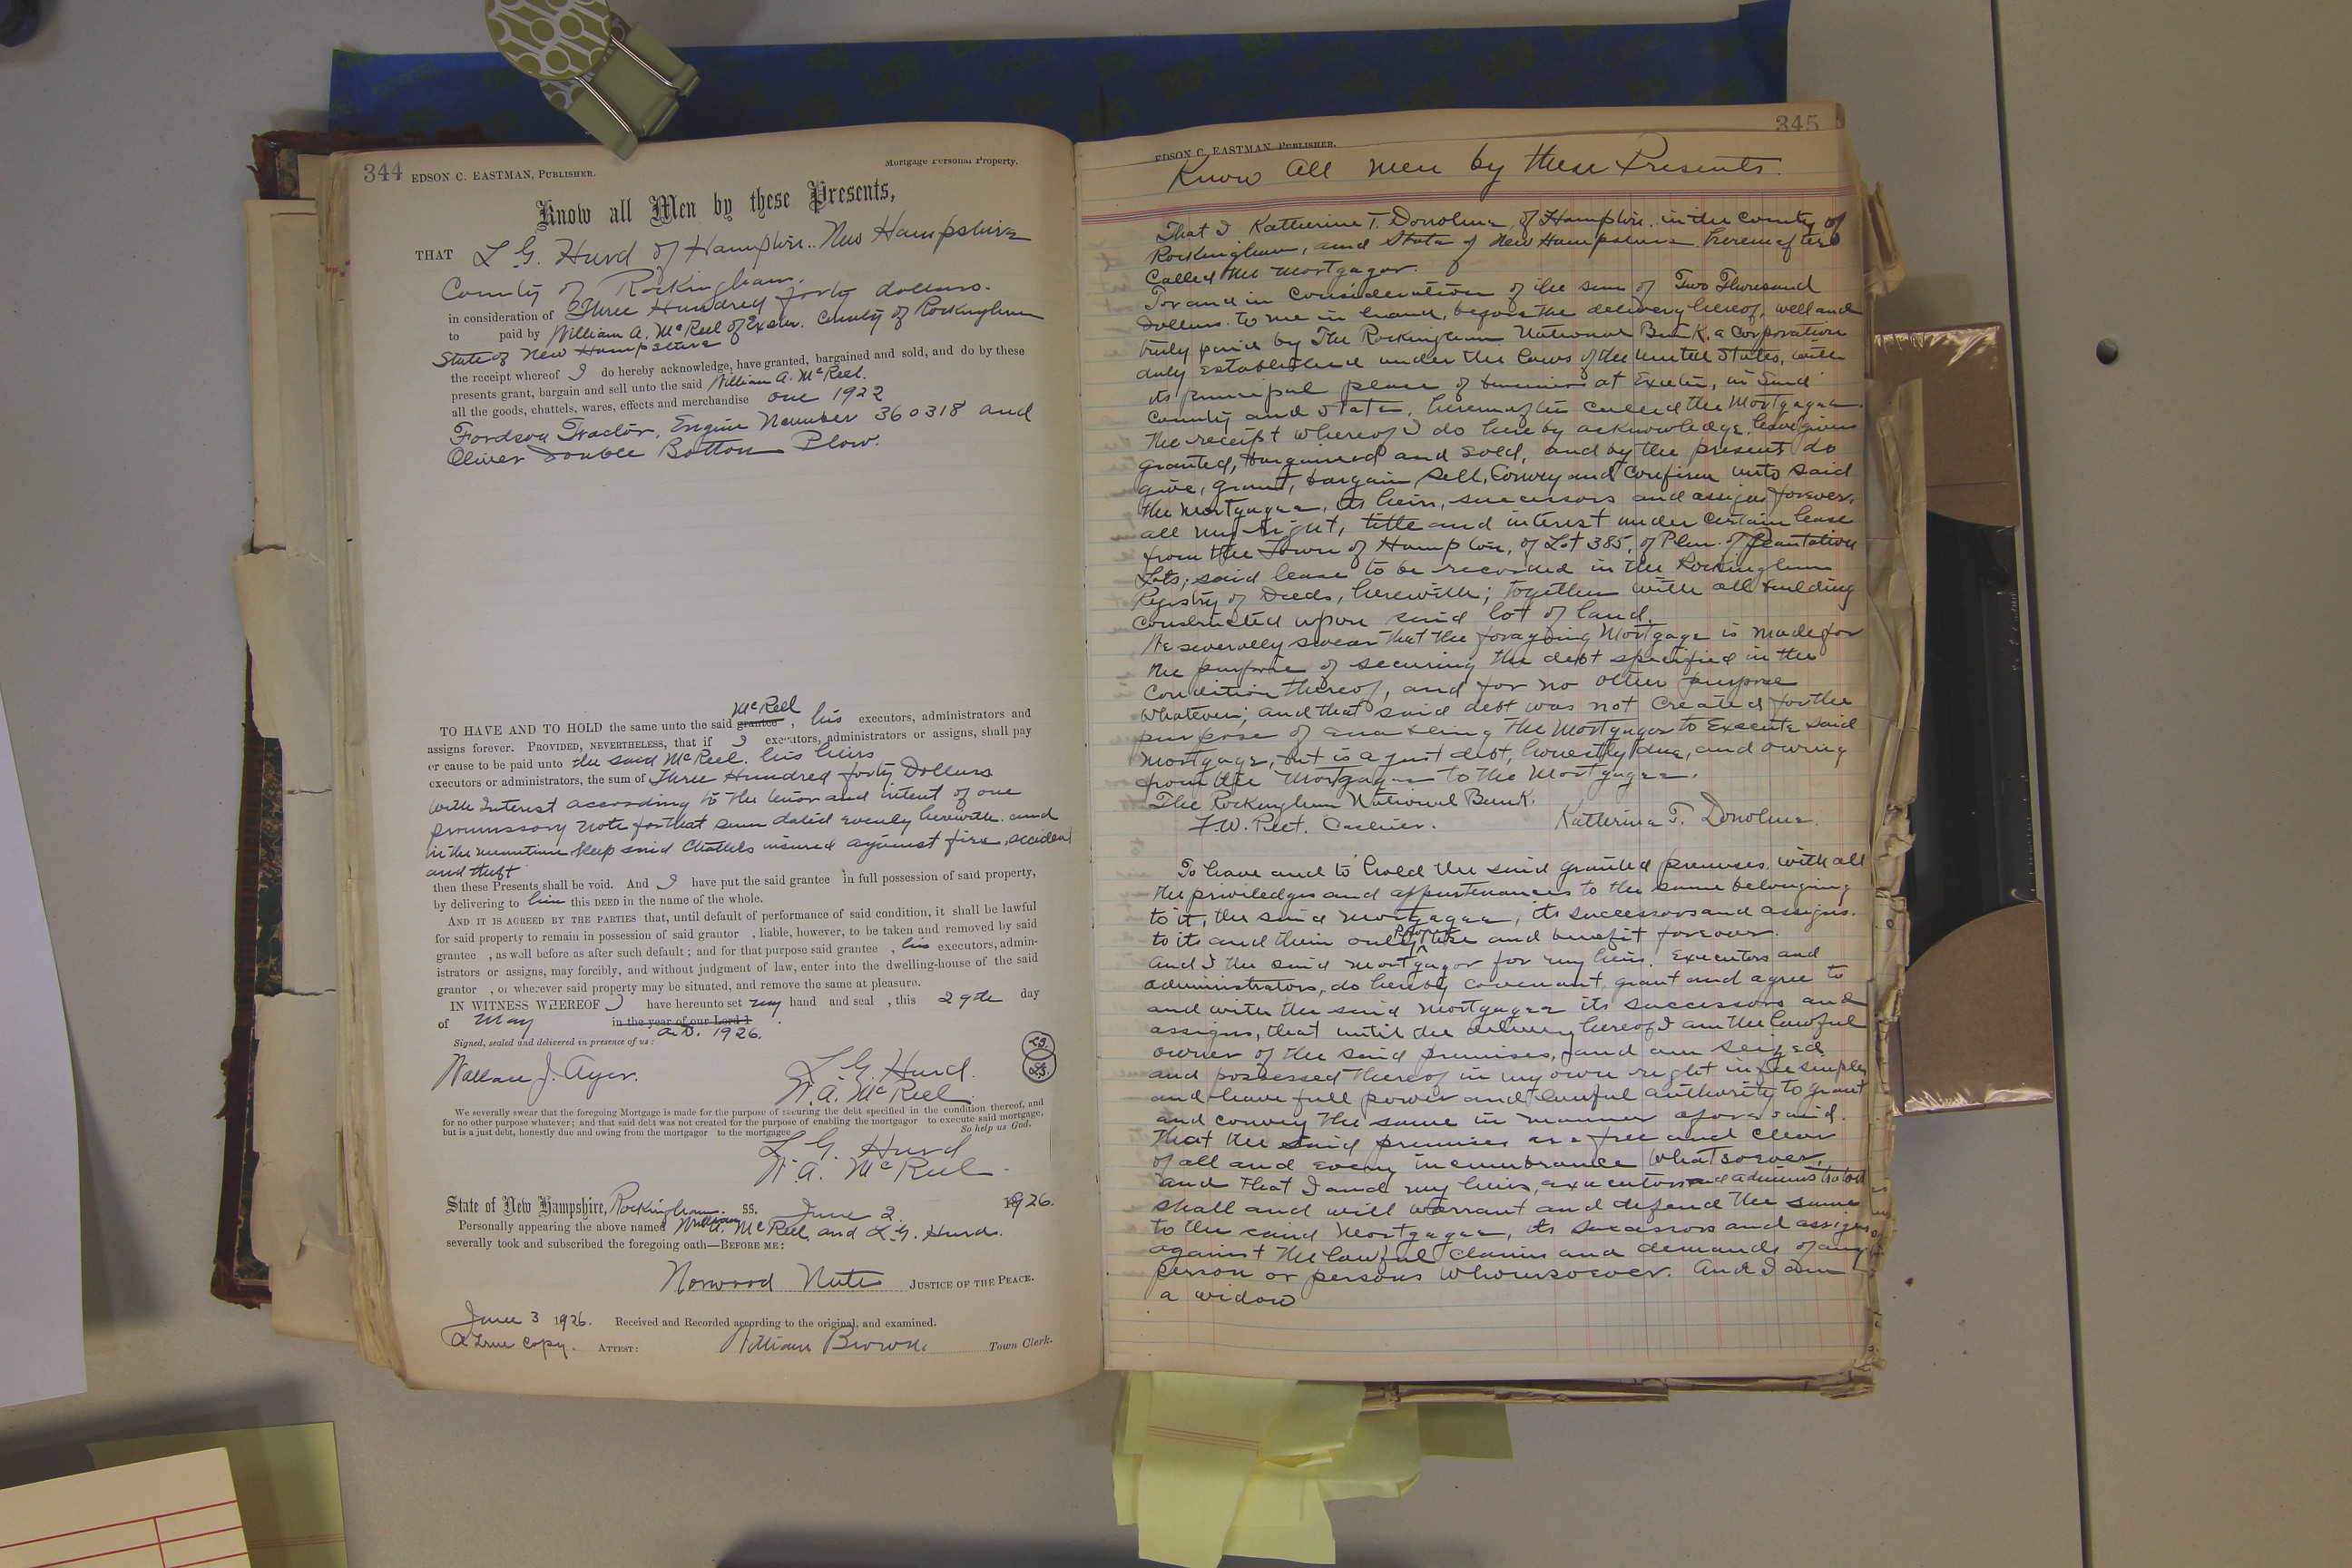 344 EDSON C. EASTMAN, PUBLISHER. Mortgage Personal Property.
Know all Men by these Presents,
THAT L. G. Hurd of Hampton. New Hampshire
County of Rockingham.
in consideration of Three Hundred forty dollars.
to paid by William A. McReel of Exeter. County of Rockingham
State of New Hampshire
the receipt whereof I do hereby acknowledge, have granted, bargained and sold, and do by these
presents grant, bargain and sell unto the said William A. McReel.
all the goods, chattels, wares, effects and merchandise one 1922
Fordson Tractor, Engine Number 360318 and
Oliver Double Bottom Plow.
McReel
TO HAVE AND TO HOLD the same unto the said grantee , his executors, administrators and
assigns forever. PROVIDED, NEVERTHELESS, that if I executors, administrators or assigns, shall pay
or cause to be paid unto the said McReel. his heirs
executors or administrators, the sum of Three Hundred forty Dollars
with Interest according to the tenor and intent of one
promissory note for that sum dated evenly herewith. and
in the meantime keep said Chattels insured against fire, accident
and theft
then these Presents shall be void. And I have put the said grantee in full possession of said property,
by delivering to him this DEED in the name of the whole.
AND IT IS AGREED BY THE PARTIES that, until default of performance of said condition, it shall be lawful
for said property to remain in possession of said grantor , liable, however, to be taken and removed by said
grantee , as well before as after such default ; and for that purpose said grantee , his executors, admin-
istrators or assigns, may forcibly, and without judgment of law, enter into the dwelling-house of the said
grantor , or wherever said property may be situated, and remove the same at pleasure.
IN WITNESS WHEREOF I have hereunto set my hand and seal , this 29th day
of May in the year of our Lord 1
A.D. 1926.
Signed, sealed and delivered in presence of us :
Wallace J. Ayer. L. G. Hurd. L.S.
W. A. McReel L.S.
We severally swear that the foregoing Mortgage is made for the purpose of securing the debt specified in the condition thereof, and
for no other purpose whatever ; and that said debt was not created for the purpose of enabling the mortgagor to execute said mortgage,
but is a just debt, honestly due and owing from the mortgagor to the mortgagee So help us God.
L. G. Hurd
W. A. McReel
State of New Hampshire, Rockingham SS. June 2. 1926.
Personally appearing the above named William A. McReel and L. G. Hurd.
severally took and subscribed the foregoing oath—BEFORE ME :
Norwood Nute JUSTICE OF THE PEACE.
June 3 1926. Received and Recorded according to the original, and examined.
A true copy. ATTEST: William Brown. Town Clerk.
345
EDSON C. EASTMAN, PUBLISHER.
Know All Men by these Presents.
That I Katherine T. Donohue, of Hampton. in the County of
Rockingham, and State of New Hampshire. hereinafter
Called the Mortgagor.
For and in Consideration of the sum of Two Thousand
Dollars. to me in hand, before the delivery hereof, well and
truly paid by The Rockingham National Bank, a Corporation
duly established under the laws of the United States, with
its principal place of business at Exeter, in Said
County and State, hereinafter called the Mortgagee.
The receipt whereof I do hereby acknowledge. have given
granted, bargained and sold, and by the present do
give, grant, bargain, sell, Convey and Confirm unto said
the Mortgagee, its heirs, successors and assigns forever,
all my right, title and interest under certain lease
from the Town of Hampton, of Lot 385, of Plan of Plantation
Lots; said lease to be recorded in the Rockingham
Registry of Deeds, herewith; together with all building
constructed upon said lot of land.
We severally swear that the foregoing Mortgage is made for
the purpose of securing the debt specified in the
Condition thereof, and for no other purpose
whatever; and that said debt was not created for the
purpose of enabling the Mortgagor to Execute said
Mortgage, but is a just debt, honestly due, and owing
from the Mortgagor to the Mortgagee.
The Rockingham National Bank.
F. W. Peet. Cashier. Katherine T. Donohue.
To have and to hold the said granted premises. with all
the priviledges and appurtenances to the same belonging
to it, the said Mortgagee, its successors and assigns.
Proper
to its and their only use and benefit forever.
And I the said Mortgagor for my heirs. Executors and
administrators, do hereby covenant, grant and agree to
and with the said Mortgagee its successors and
assigns, that until the delivery hereof I am the lawful
owner of the said premises, and am seized
and possessed thereof in my own right in fee simple,
and have full power and lawful authority to grant
and convey the same in manner aforesaid.
That the said premises are free and clear
of all and every incumbrance whatsoever,
and that I and my heirs, executors and administrators
shall and will warrant and defend the same
to the said Mortgagee, its successors and assigns
against the lawful Claims and demands of any
person or persons whomsoever. And I am
a widow